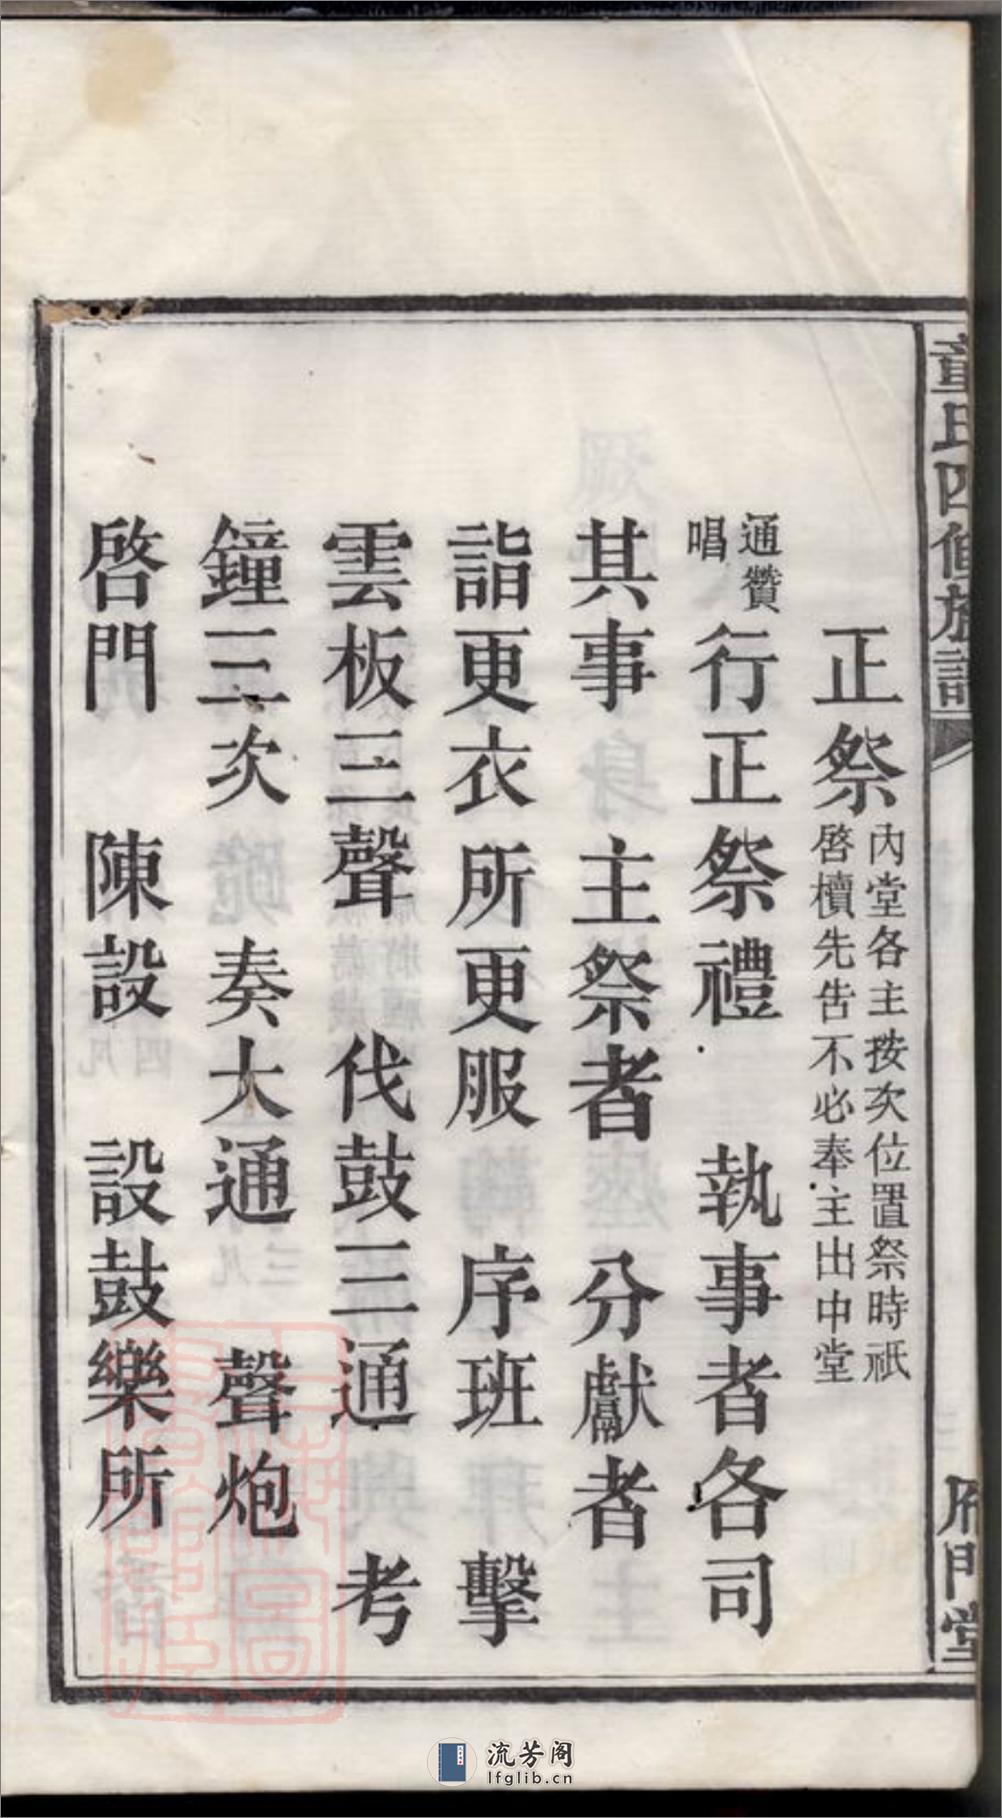 章氏四修族譜
雁門堂
正祭內堂各主按次位置祭時祇啓櫝先告不必奉主出中堂
通贊唱行正祭禮　執事者各司
其事　主祭者　分獻者
詣更衣所更服　序班　擊
雲板三聲　伐鼓三通　考
鐘三次　奏大通　聲炮
啓門　陳設　設鼓樂所
流芳阁
lfglib.cn